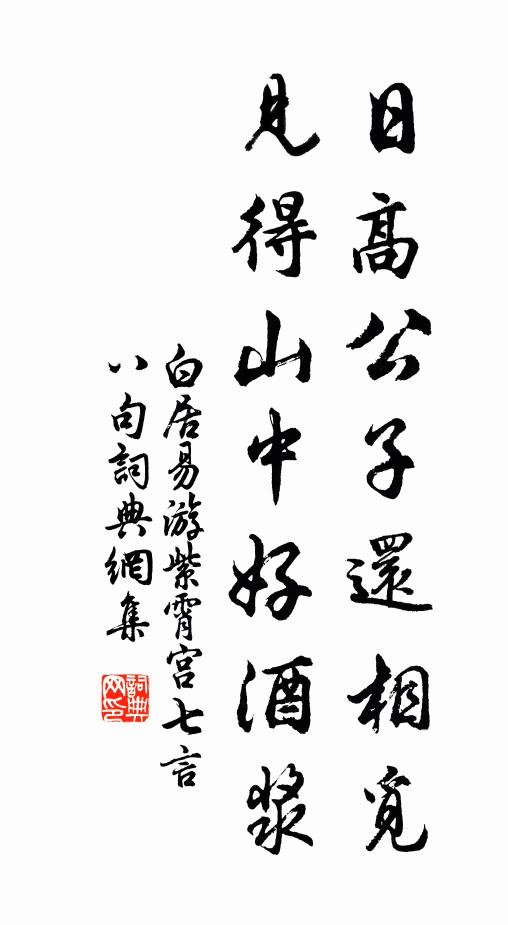 日高公子還相覓
見得山中好酒漿
白居易游紫霄宮七言
八句詞典網集
詞典
网印